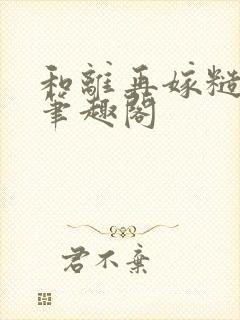 和離再嫁糙
筆趣閣
君不棄